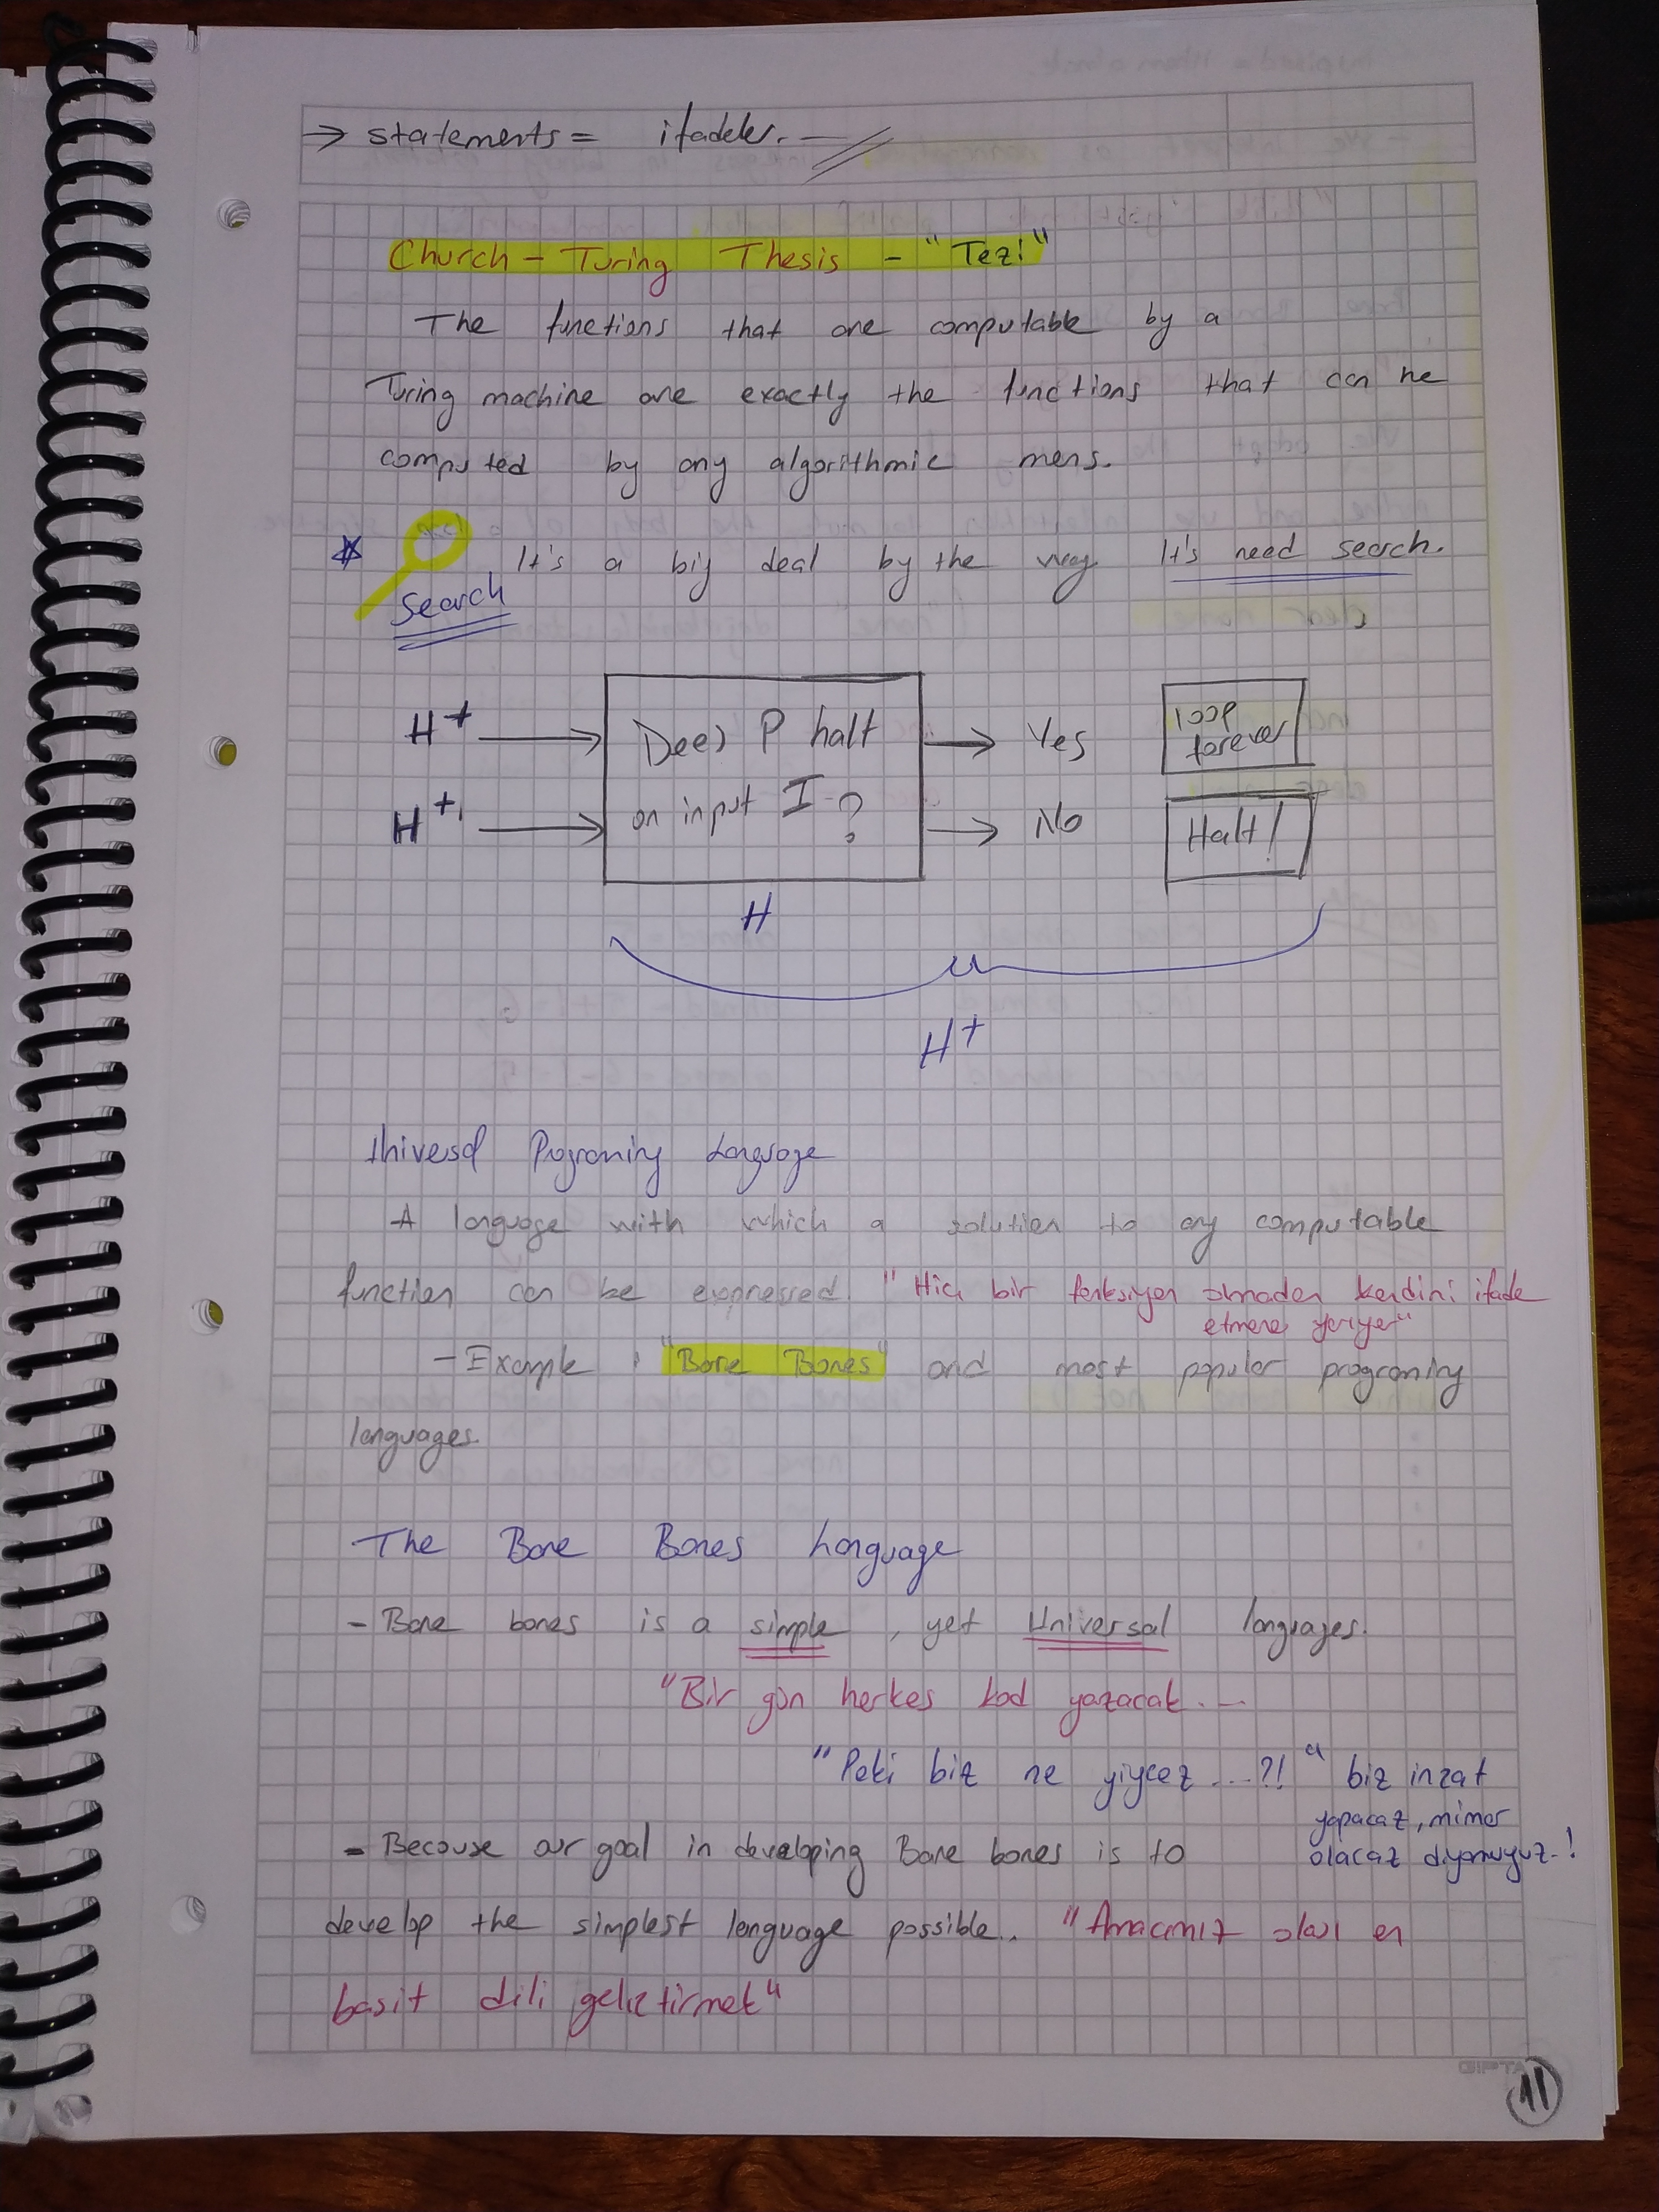 → statements = ifadeler.
Church - Turing Thesis - "Tezi"
The functions that are computable by a
Turing machine are exactly the functions that can be
computed by any algorithmic mens.
* It's a big deal by the way It's need search.
Search
H+ → Does P halt → Yes loop forever
H+, → on input I? → No Halt!
H
H+
Universal Programing Language
A language with which a solution to any computable
function can be expressed. "Hiç bir kendini ifade
etmene yarıyor"
- Example : "Bare Bones" and most popular programing
languages.
- The Bare Bones Language
- Bare bones is a simple, yet Universal languages.
"Bir gün herkes kod yazacak...
"Peki biz ne yiyicez...?!" biz inzat
yapacaz, mimar
olacaz diyomuyuz.!
- Because our goal in developing Bare bones is to
develp the simplest language possible.. "Amacımız olan en
basit dili geliştirmek"
11